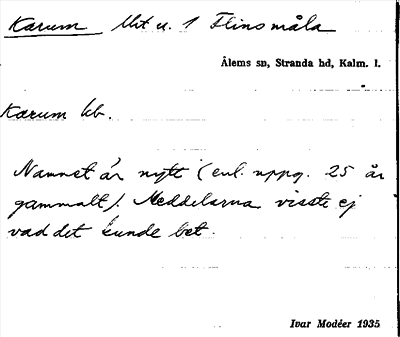 Karum Uht u. 1 Flinsmåla
Ålems sn, Stranda hd, Kalm. l.
Karum lb.
Namnet är nytt (enl. uppg. 25 år
gammalt). Meddelarna visste ej
vad det kunde bet.
Ivar Modéer 1935